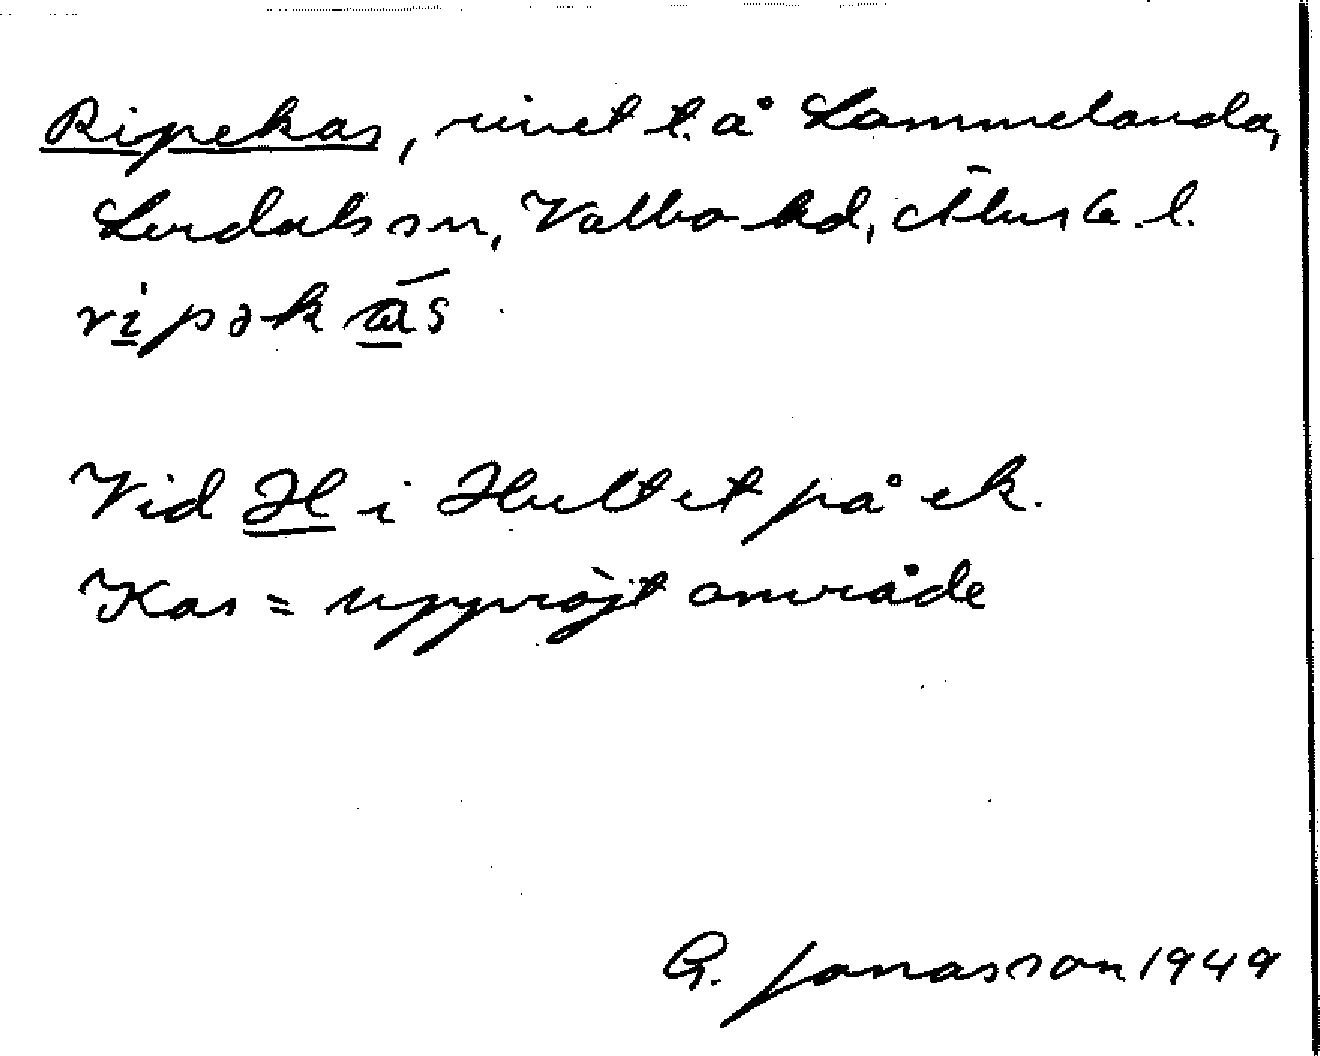 Ripekas, rivet t. å Lammelanda,
Lerdals sn, Valbo hd, Älvsb. l.
ripəkɑ̄s
Vid H i Hultet på ek.
Kas = uppröjt område
G. Jonasson 1949